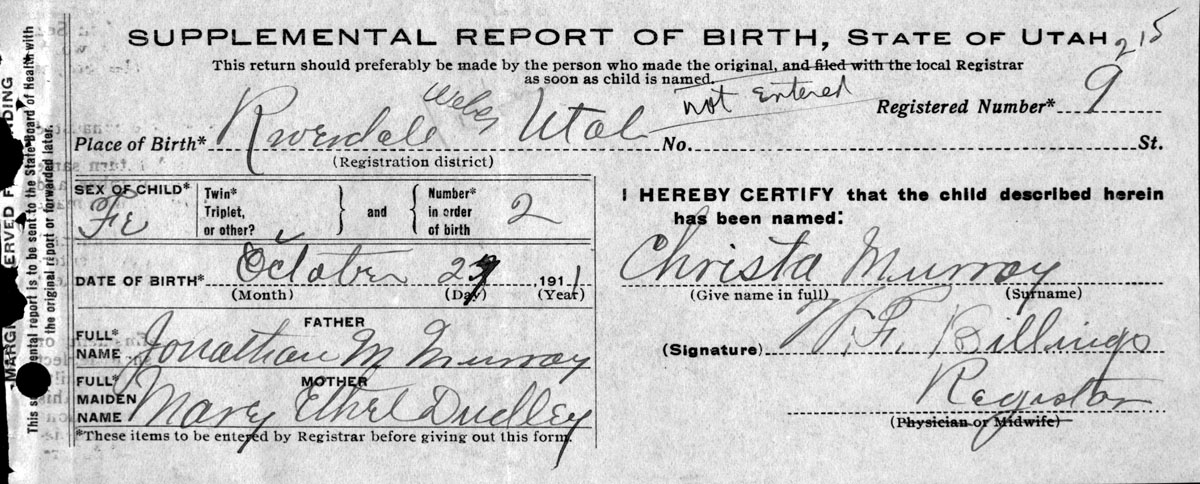 SUPPLEMENTAL REPORT OF BIRTH, STATE OF UTAH 215
This return should preferably be made by the person who made the original, and filed with the local Registrar
as soon as child is named.
not Entered
Registered Number* 9
Weber
Place of Birth* Riverdale Utah No. St.
(Registration district)
SEX OF CHILD* Fe
Twin* Triplet, or other? } and { Number* in order of birth 2
DATE OF BIRTH* October 1911
(Month) (Day) (Year)
FATHER
FULL* NAME Jonathan M Murray
MOTHER
FULL* MAIDEN NAME Mary Ethel Dudley
*These items to be entered by Registrar before giving out this form.
I HEREBY CERTIFY that the child described herein
has been named:
Christa Murray
(Give name in full) (Surname)
(Signature) W. F. Billings
Registar
(Physician or Midwife)
MARGIN RESERVED F DING
This s ental report is to be sent to the State Board of Health with
the original report or forwarded later.